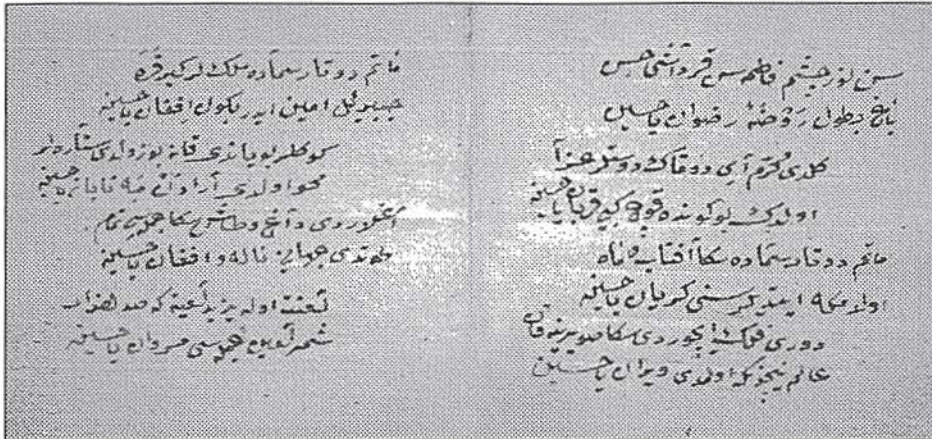 سن نور چشم فاطمه سن قرداشی حسن
باغ بطول روضهٔ رضوان یا حسین
کلدی محرم آیی دوقاک دوستلر عزا
اولدک بو کونده قوچ کبی قربان یا حسین
ماتم دوقار سماده سکا آفتاب و ماه
ایتدیلر سنی کریان یا حسین
دوری فلک ایچوردی سکا صو یرینه قان
عالم اولدی ویران یا حسین
ماتم دوقار سماده ملک لر کیر قره
جبرئیل امین ایدر افغان یا حسین
کوکلر بویاندی قانه بوزولدی ستاره لر
محو اولدی آرادان مه تابان یا حسین
آغلوردی داغ و طاش سکا جمله سی تمام
طوتدی جهانی ناله و افغان یا حسین
لعنت اوله یزید لعینه که صد هزار
شمر لعین جمله سی مروان یا حسین